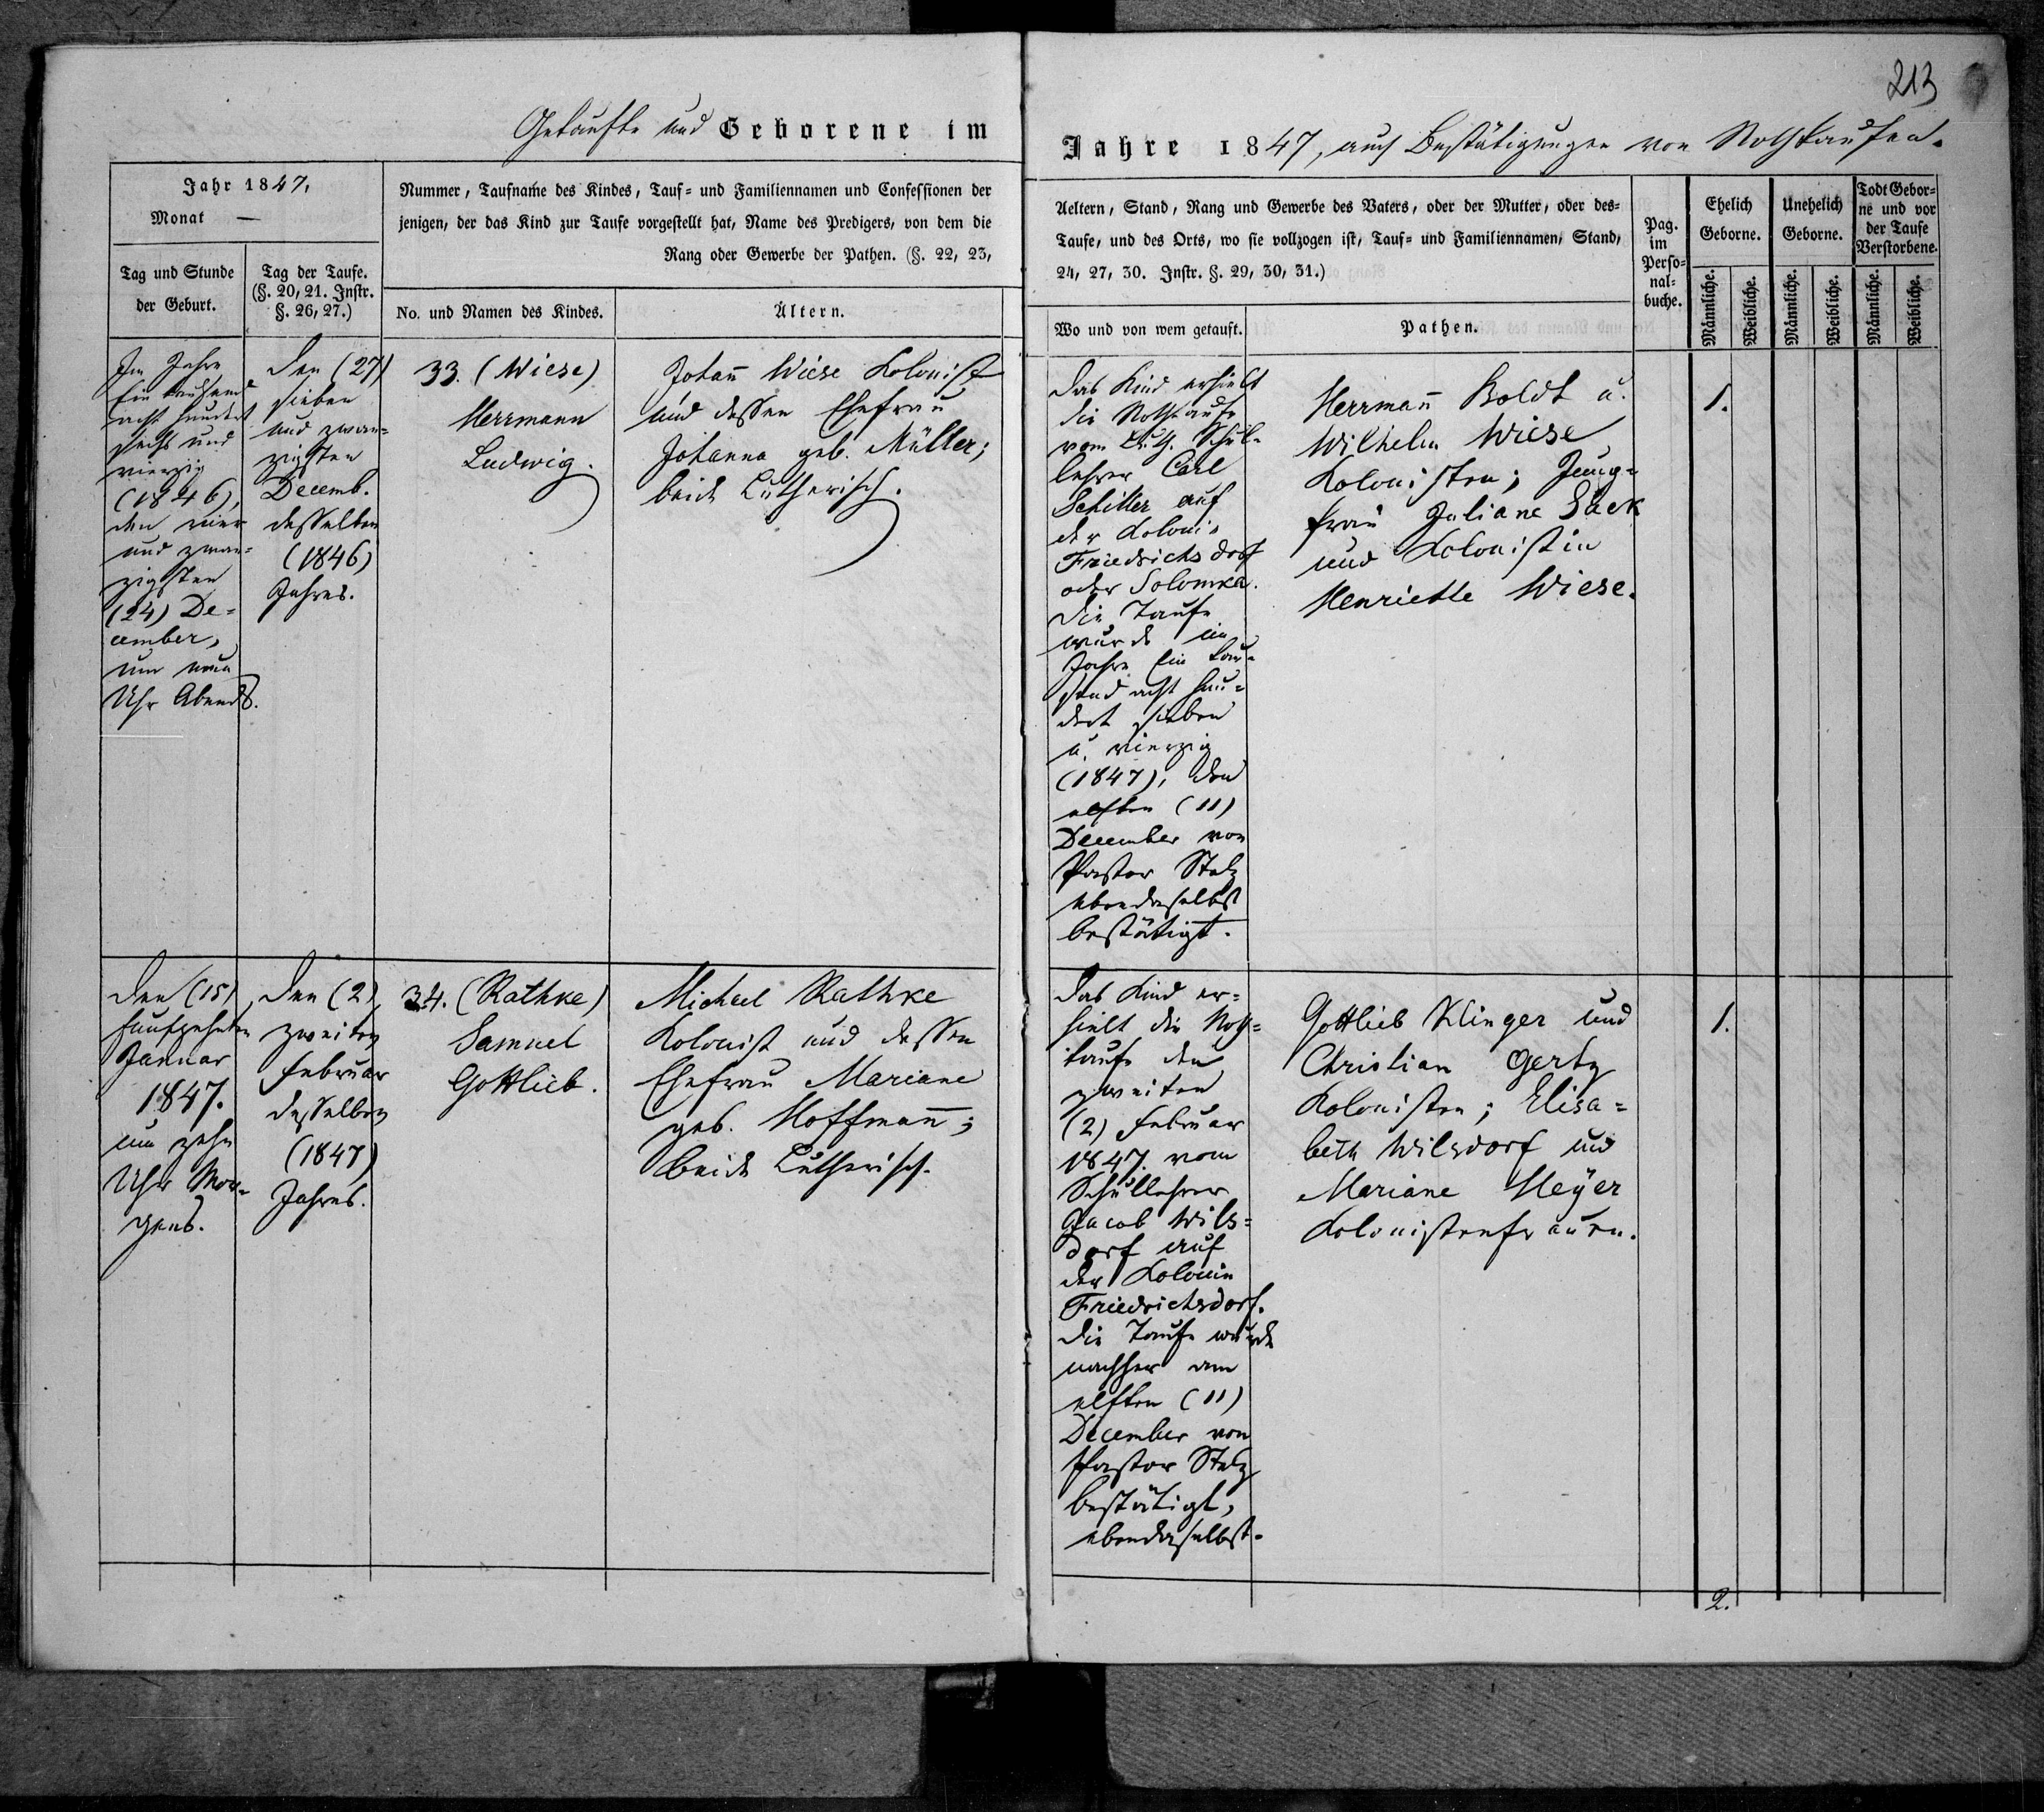 213
Getaufte und Geborene im
Jahre 1847, auch Bestätigungen von Nothtaufen.
Jahr 1847,
Monat —
Tag und Stunde
der Geburt.
Tag der Taufe.
(§. 20, 21. Instr.
§. 26, 27.)
Nummer, Taufname des Kindes, Tauf- und Familiennamen und Confessionen der
jenigen, der das Kind zur Taufe vorgestellt hat, Name des Predigers, von dem die
Rang oder Gewerbe der Pathen. (§. 22, 23,
No. und Namen des Kindes.
Ältern.
Aeltern, Stand, Rang und Gewerbe des Vaters, oder der Mutter, oder des-
Taufe, und des Orts, wo sie vollzogen ist, Tauf- und Familiennamen, Stand,
24, 27, 30. Instr. §. 29, 30, 31.)
Wo und von wem getauft.
Pathen.
Pag.
im
Perso-
nal-
buche.
Ehelich
Geborne.
Unehelich
Geborne.
Todt Gebor-
ne und vor
der Taufe
Verstorbene.
Männliche.
Weibliche.
Männliche.
Weibliche.
Männliche.
Weibliche.
Im Jahre
Ein tausend
acht hundert
sechs und
vierzig
(1846),
den vier
und zwan-
zigsten
(24) De-
cember,
um neun
Uhr Abends.
den (27)
sieben
und zwan-
zigsten
Decemb.
desselben
(1846)
Jahres.
33. (Wiese)
Herrmann
Ludwig.
Johann̄ Wiese Kolonist
und dessen Ehefrau
Johanna geb. Müller;
beide Lutherisch.
Das Kind erhielt
die Nothtaufe
vom Schul-
lehrer Carl
Schiller auf
der Kolonie
Friedrichsdorf
oder Solomka.
Die Taufe
wurde im
Jahre Ein tau-
send acht hun-
dert sieben
u. vierzig
(1847), den
elften (11)
December von
Pastor Stelz
ebendaselbst
bestätigt.
Herrmann̄ Boldt u.
Wilhelm Wiese
Kolonisten; Jung-
frau Juliane Säck
und Kolonistin
Henriette Wiese.
1.
Den (15)
funfzehnten
Januar
1847.
um zehn
Uhr Mor-
gens.
Den (2)
zweiten
Februar
desselben
(1847)
Jahres.
34. (Rathke)
Samuel
Gottlieb.
Michael Rathke
Kolonist und dessen
Ehefrau Mariane
geb. Hoffmann̄;
beide Lutherisch.
Das Kind er-
hielt die Noth-
taufe den
zweiten
(2) Februar
1847. vom
Schullehrer
Jacob Wils-
dorf auf
der Kolonie
Friedrichsdorf.
Die Taufe wurde
nachher am
elften (11)
December von
Pastor Stelz
bestätigt,
ebendaselbst.
Gottlieb Klinger und
Christian Gertz
Kolonisten; Elisa-
beth Wilsdorf und
Mariane Meÿer
Kolonistenfrauen.
1.
2.